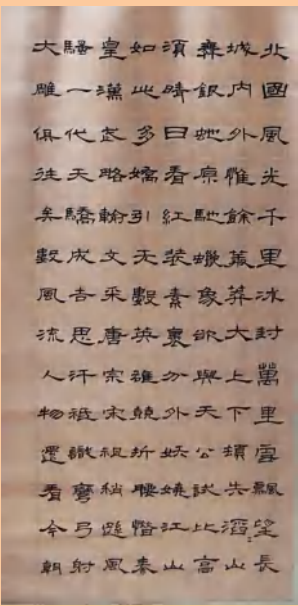 北國風光千里冰封萬里雪飄望長
城内外惟餘莽莽大上下頓失滔〻山
舞銀虵原馳蠟象欲與天公試比高
須晴日看紅裝素裹分外妖嬈江山
如此多嬌引无數英雄競折腰惜秦
皇漢武略輸文采唐宗宋祖稍遜風
騷一代天驕成吉思汗祗識彎弓射
大雕俱往矣數風流人物還看今朝